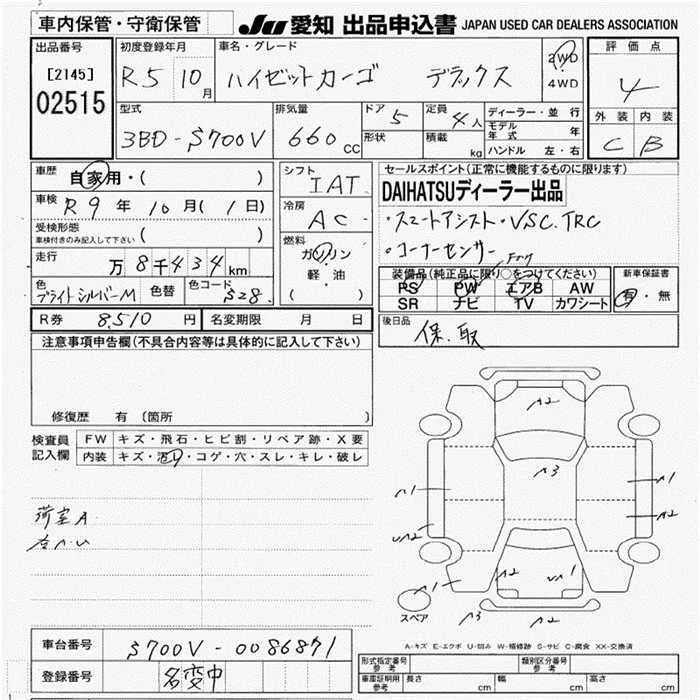 車内保管・守衛保管
JU 愛知 出品申込書 JAPAN USED CAR DEALERS ASSOCIATION
出品番号
[2145]
02515
初度登録年月
R5 10月
車名・グレード
ハイゼットカーゴ デラックス
2WD
・
4WD
評価点
4
外装 内装
C B
型式
3BD-S700V
排気量
660 cc
ドア 5
形状
定員 4人
積載 kg
ディーラー・並行
モデル年式 年
ハンドル 左・右
車歴
自家用・( )
車検
R9年10月(1日)
受検形態
車検付きのみ記入して下さい ( )
走行
万8千434km
色
ブライトシルバーM
色替
色コード
S28
シフト
IAT
冷房
AC
燃料
ガソリン
・
軽・油
( )
セールスポイント(正常に機能するものに限ります)
DAIHATSUディーラー出品
・スマートアシスト・VSC.TRC
・コーナーセンサー
装備品(純正品に限り○をつけてください)
PS PW エアB AW
SR ナビ TV カワシート
新車保証書
有・無
R券 8,510円
名変期限 月 日
後日品
保.取
注意事項申告欄(不具合内容等は具体的に記入して下さい)
修復歴 有 〔箇所 〕
検査員
記入欄
FW キズ・飛石・ヒビ割・リペア跡・X要
内装 キズ・汚れ・コゲ・穴・スレ・キレ・破レ
荷室A
A2
A3
A1
A1
A2
UA2
A1
A2
UA1
A3
A2
スペア
A-キズ E-エクボ U-凹み W-補修跡 S-サビ C-腐食 XX-交換済
車台番号
S700V-0086871
登録番号
名変中
形式指定番号
参考
類別区分番号
参考
車庫証明用
参考
長さ cm
幅 cm
高さ cm